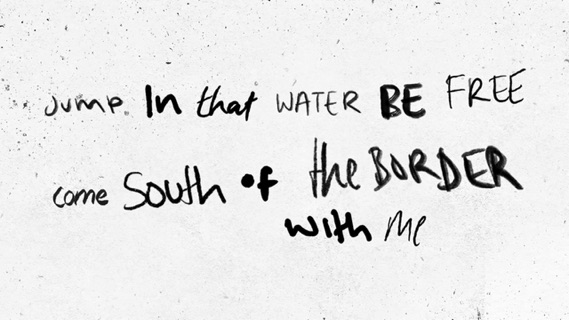 Jump In that WATER BE FREE
come South of the BORDER
with Me